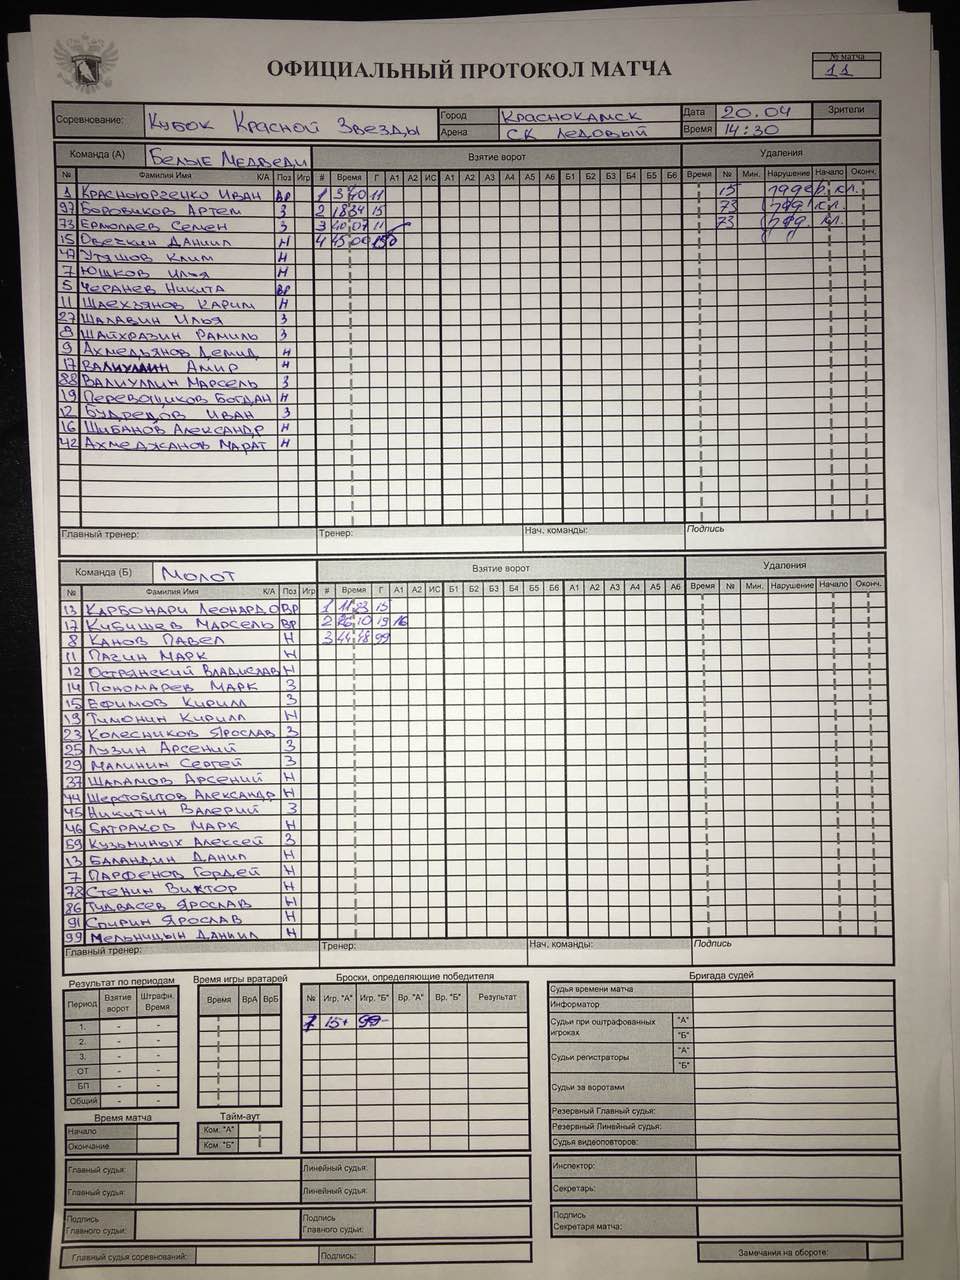 ОФИЦИАЛЬНЫЙ ПРОТОКОЛ МАТЧА
№ матча
11
Соревнование: Кубок Красной Звезды Город Краснокамск Дата 20.04 Зрители
Арена СК Ледовый Время 14:30
Команда (А) Белые Медведи Взятие ворот Удаления
№ Фамилия Имя К/А Поз Игр # Время Г А1 А2 ИС А1 А2 А3 А4 А5 А6 Б1 Б2 Б3 Б4 Б5 Б6 Время № Мин. Нарушение Начало Оконч.
1 Красноюрзенко Иван ВР 1 3 40 11 15
97 Боровиков Артем З 2 18 34 15 73
73 Ермолаев Семен З 3 40 07 11 73
15 Овечкин Даниил Н 4 45 00
47 Утяшов Клим Н
7 Юшков Илья Н
5 Черанев Никита ВР
11 Шаехъянов Карим Н
27 Шалавин Илья З
8 Шайхразин Рамиль З
9 Ахмедьянов Демид Н
17 Валиуллин Амир Н
88 Валиуллин Марсель З
19 Перевощиков Богдан Н
12 Будредов Иван З
16 Шибанов Александр Н
42 Ахмеджанов Марат Н
Главный тренер: Тренер: Нач. команды: Подпись
Команда (Б) Молот Взятие ворот Удаления
№ Фамилия Имя К/А Поз Игр # Время Г А1 А2 ИС Б1 Б2 Б3 Б4 Б5 Б6 А1 А2 А3 А4 А5 А6 Время № Мин. Нарушение Начало Оконч.
13 Карбонари Леонардо ВР 1 11 23 15
17 Кубишев Марсель ВР 2 26 10 19 16
8 Канов Павел Н 3 44 48 99
11 Пагин Марк Н
12 Острянский Владислав Н
14 Пономарев Марк З
15 Ефимов Кирилл З
19 Тимонин Кирилл Н
23 Колесников Ярослав З
25 Лузин Арсений З
29 Малинин Сергей З
37 Шаламов Арсений Н
44 Шерстобитов Александр Н
45 Никитин Валерий З
46 Батраков Марк Н
69 Кузьминых Алексей З
13 Баландин Данил Н
7 Парфенов Гордей Н
78 Стенин Виктор Н
86 Тудвасев Ярослав Н
91 Спирин Ярослав Н
99 Мельницын Даниил Н
Главный тренер: Тренер: Нач. команды: Подпись
Результат по периодам Время игры вратарей Броски, определяющие победителя Бригада судей
Период Взятие ворот Штрафн. Время Время ВрА ВрБ № Игр. "А" Игр. "Б" Вр. "А" Вр. "Б" Результат
1. - -
2. - -
3. - -
ОТ - -
БП - -
Общий - -
15+ 99-
Судья времени матча
Информатор
Судьи при оштрафованных игроках "А"
"Б"
Судьи регистраторы "А"
"Б"
Судьи за воротами
Резервный Главный судья:
Резервный Линейный судья:
Судья видеоповторов:
Время матча Тайм-аут
Начало Ком. "А"
Окончание Ком. "Б"
Главный судья: Линейный судья: Инспектор:
Главный судья: Линейный судья: Секретарь:
Подпись Главного судьи: Подпись Главного судьи: Подпись Секретаря матча:
Главный судья соревнований: Подпись: Замечания на обороте: